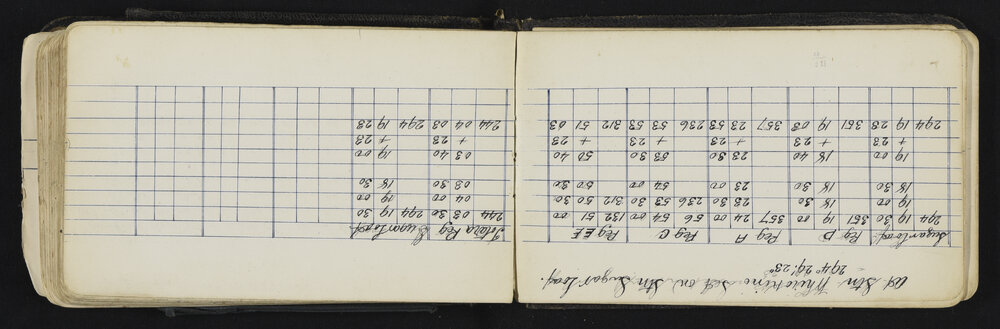 At Stn Set on Stn Sugar Loaf.
294° 19' 23"
Sugarloaf Peg D Peg A Peg C Peg EE Totara Peg Sugarloaf
294 19 30 351 19 00 357 24 00 56 54 00 132 51 00 244 03 30 294 19 30
18 30 23 30 236 53 30 312 50 30 04 00 19 00
18 30 18 30 23 00 54 00 50 30 03 30 18 30
19 00 18 40 23 30 53 30 50 40 03 40 19 00
+ 23 + 23 + 23 + 23 + 23 + 23 + 23
294 19 23 351 19 03 357 23 53 236 53 53 312 51 03 244 04 03 294 19 23